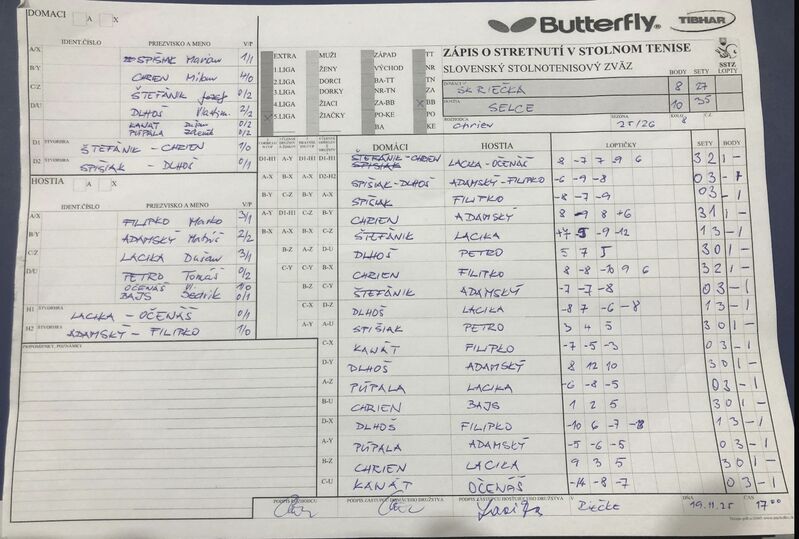 DOMACI A X
IDENT.ČÍSLO PRIEZVISKO A MENO V/P
A/X SPIŠIAK Marian 1/1
B/Y CHRIEN Milan 4/0
C/Z ŠTEFÁNIK Jozef 0/2
D/U DLHOŠ Vlastimil 2/2
KANÁT Dušan 0/2
PÚPALA Zdenek 0/2
D1 ŠTVORHRA ŠTEFÁNIK - CHRIEN 1/0
D2 ŠTVORHRA SPIŠIAK - DLHOŠ 0/1
HOSTIA A X
IDENT.ČÍSLO PRIEZVISKO A MENO V/P
A/X FILIPKO Marko 3/1
B/Y ADAMSKÝ Matúš 2/2
C/Z LACIKA Dušan 3/1
D/U PETRO Tomáš 0/2
OČENÁŠ 1/0
BAJS 0/1
H1 ŠTVORHRA LACIKA - OČENÁŠ 0/1
H2 ŠTVORHRA ADAMSKÝ - FILIPKO 1/0
PRIPOMIENKY, POZNÁMKY
Butterfly TIBHAR
EXTRA MUŽI ZÁPAD TT
1.LIGA ŽENY VÝCHOD NR
2.LIGA DORCI BA-TT TN
3.LIGA DORKY NR-TN ZA
4.LIGA ŽIACI ZA-BB X BB
5.LIGA ŽIAČKY PO-KE PO
BA KE
ZÁPIS O STRETNUTÍ V STOLNOM TENISE
SLOVENSKÝ STOLNOTENISOVÝ ZVÄZ SSTZ
BODY SETY LOPTY
DOMÁCI ŠK RIEČKA 8 27
HOSTIA SELCE 10 35
ROZHODCA Chrien SEZÓNA 25/26 KOLO 8
DOMÁCI HOSTIA LOPTIČKY SETY BODY
D1-H1 A-Y D1-H1 D1-H1 ŠTEFÁNIK-CHRIEN SPIŠIAK LACIKA-OČENÁŠ 8 -7 7 -9 6 3 2 1 -
A-X B-X A-X D2-H2 SPIŠIAK-DLHOŠ ADAMSKÝ-FILIPKO -6 -9 -8 0 3 - 1
B-Y C-Z B-Y A-X SPIŠIAK FILIPKO -8 -7 -9 0 3 - 1
A-Y D1-H1 C-Z B-Y CHRIEN ADAMSKÝ 8 -9 8 +6 3 1 1 -
B-X A-X B-X C-Z ŠTEFÁNIK LACIKA +7 -5 -9 -12 1 3 - 1
B-Z A-Z D-U DLHOŠ PETRO 5 7 5 3 0 1 -
C-Y C-Y B-X CHRIEN FILIPKO 8 -8 -10 9 6 3 2 1 -
B-Z C-Y ŠTEFÁNIK ADAMSKÝ -7 -7 -8 0 3 - 1
C-X D-Z DLHOŠ LACIKA -8 7 -6 -8 1 3 - 1
A-Y A-U SPIŠIAK PETRO 3 4 5 3 0 1 -
C-X KANÁT FILIPKO -7 -5 -3 0 3 - 1
D-Y DLHOŠ ADAMSKÝ 8 12 10 3 0 1 -
A-Z PÚPALA LACIKA -6 -8 -5 0 3 - 1
B-U CHRIEN BAJS 1 2 5 3 0 1 -
D-X DLHOŠ FILIPKO -10 6 -7 -18 1 3 - 1
A-Y PÚPALA ADAMSKÝ -5 -6 -5 0 3 - 1
B-Z CHRIEN LACIKA 9 3 5 3 0 1 -
C-U KANÁT OČENÁŠ -14 -8 -7 0 3 - 1
PODPIS ROZHODCU PODPIS ZÁSTUPCU DOMÁCEHO DRUŽSTVA PODPIS ZÁSTUPCU HOSŤUJÚCEHO DRUŽSTVA V Riečke DŇA 19.11.25 ČAS 17:00